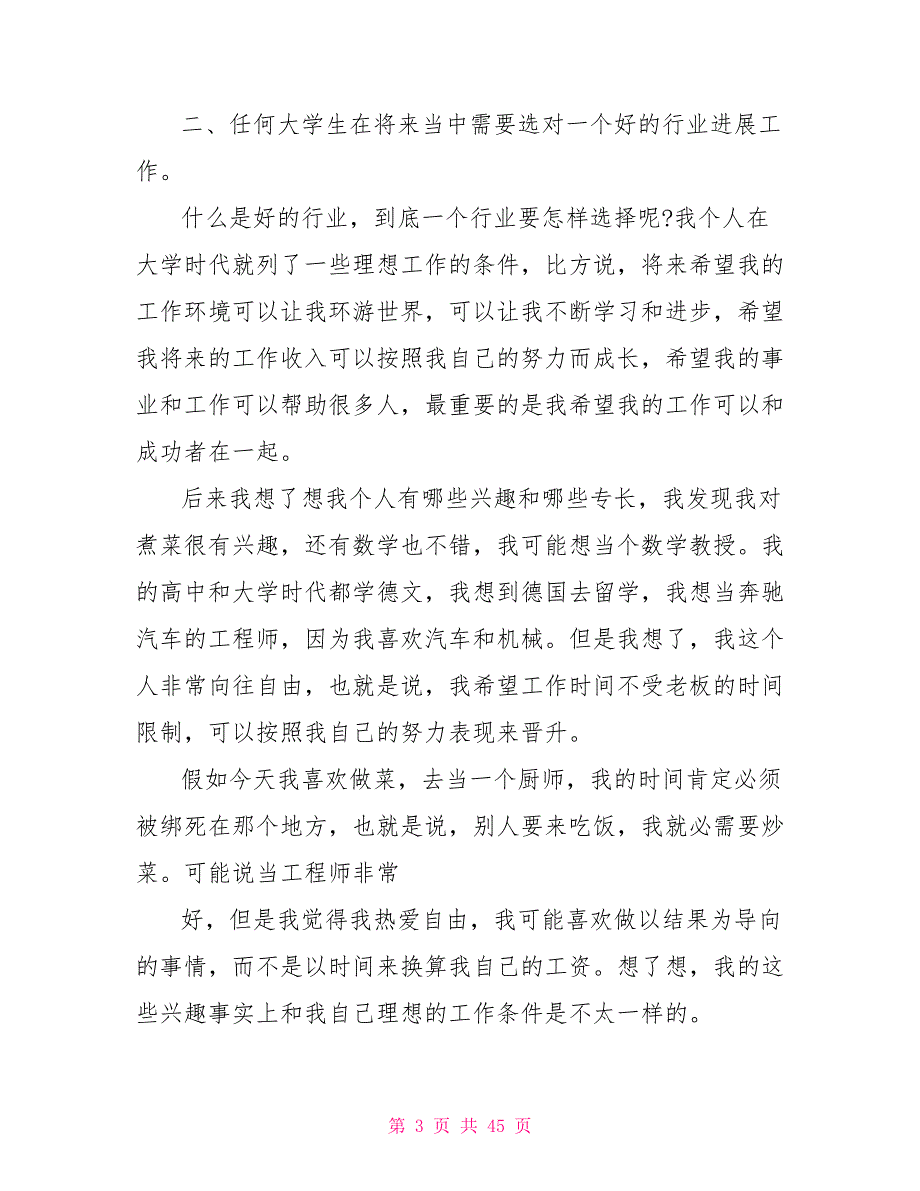 二、任何大学生在将来当中需要选对一个好的行业进展工
作。
什么是好的行业，到底一个行业要怎样选择呢?我个人在
大学时代就列了一些理想工作的条件，比方说，将来希望我的
工作环境可以让我环游世界，可以让我不断学习和进步，希望
我将来的工作收入可以按照我自己的努力而成长，希望我的事
业和工作可以帮助很多人，最重要的是我希望我的工作可以和
成功者在一起。
后来我想了想我个人有哪些兴趣和哪些专长，我发现我对
煮菜很有兴趣，还有数学也不错，我可能想当个数学教授。我
的高中和大学时代都学德文，我想到德国去留学，我想当奔驰
汽车的工程师，因为我喜欢汽车和机械。但是我想了，我这个
人非常向往自由，也就是说，我希望工作时间不受老板的时间
限制，可以按照我自己的努力表现来晋升。
假如今天我喜欢做菜，去当一个厨师，我的时间肯定必须
被绑死在那个地方，也就是说，别人要来吃饭，我就必需要炒
菜。可能说当工程师非常
好，但是我觉得我热爱自由，我可能喜欢做以结果为导向
的事情，而不是以时间来换算我自己的工资。想了想，我的这
些兴趣事实上和我自己理想的工作条件是不太一样的。
第 3 页 共 45 页